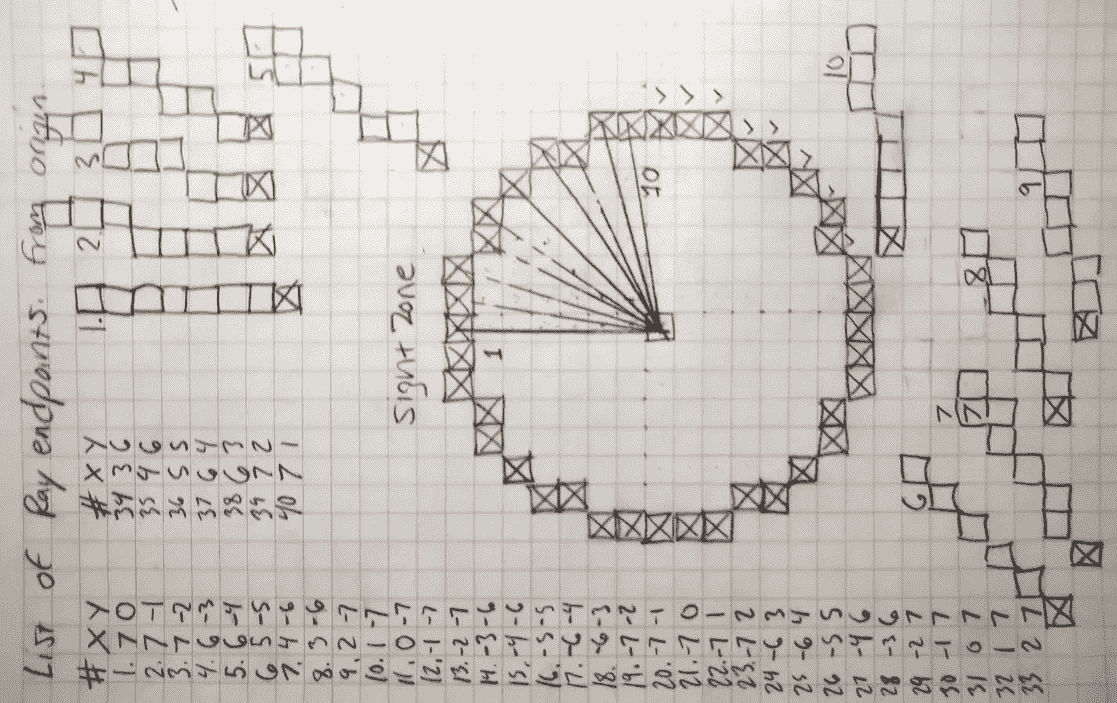 List of Ray endpoints. From origin.
# X Y
1. 7 0
2. 7 -1
3. 7 -2
4. 6 -3
5. 6 -4
6 5 -5
7. 4 -6
8. 3 -6
9. 2 -7
10. 1 -7
11. 0 -7
12. -1 -7
13. -2 -7
14. -3 -6
15. -4 -6
16. -5 -5
17. -6 -4
18. -6 -3
19. -7 -2
20. -7 -1
21. -7 0
22. -7 1
23. -7 2
24 -6 3
25 -6 4
26 -5 5
27 -4 6
28 -3 6
29 -2 7
30 -1 7
31 0 7
32 1 7
33. 2 7
# X Y
34 3 6
35 4 6
36 5 5
37 6 4
38 6 3
39 7 2
40 7 1
1.
2.
3
4
5
Sight Zone
1
10
6
7
7
8
9
10